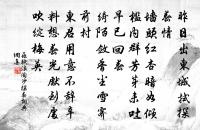 昨日出東城試探
春情
墻頭紅杏暗如傾
檻內群芳芽未吐
早已回春
綺陌斂香塵雪霽
前村
東君用意不辭辛
料想春光先到處
吹綻梅英